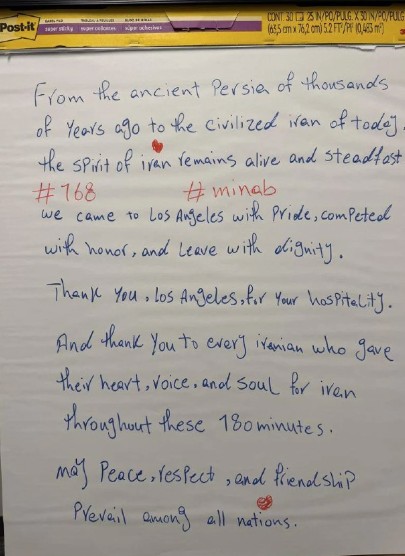 Post-it
super sticky super collantes súper adhesivos
CONT 30 25 IN/PO/PULG X 30 IN/PO/PULG
(63,5 cm x 76,2 cm) 5.2 FT²/PI² (0,483 m²)
From the ancient Persia of thousands
of Years ago to the civilized iran of today.
the spirit of iran remains alive and steadfast
#768 #minab
we came to Los Angeles with Pride, competed
with honor, and Leave with dignity.
Thank You, Los Angeles, for Your hospitality.
And thank You to every iranian who gave
their heart, voice, and soul for iran
throughout these 180 minutes.
may Peace, respect, and friendship
Prevail among all nations.